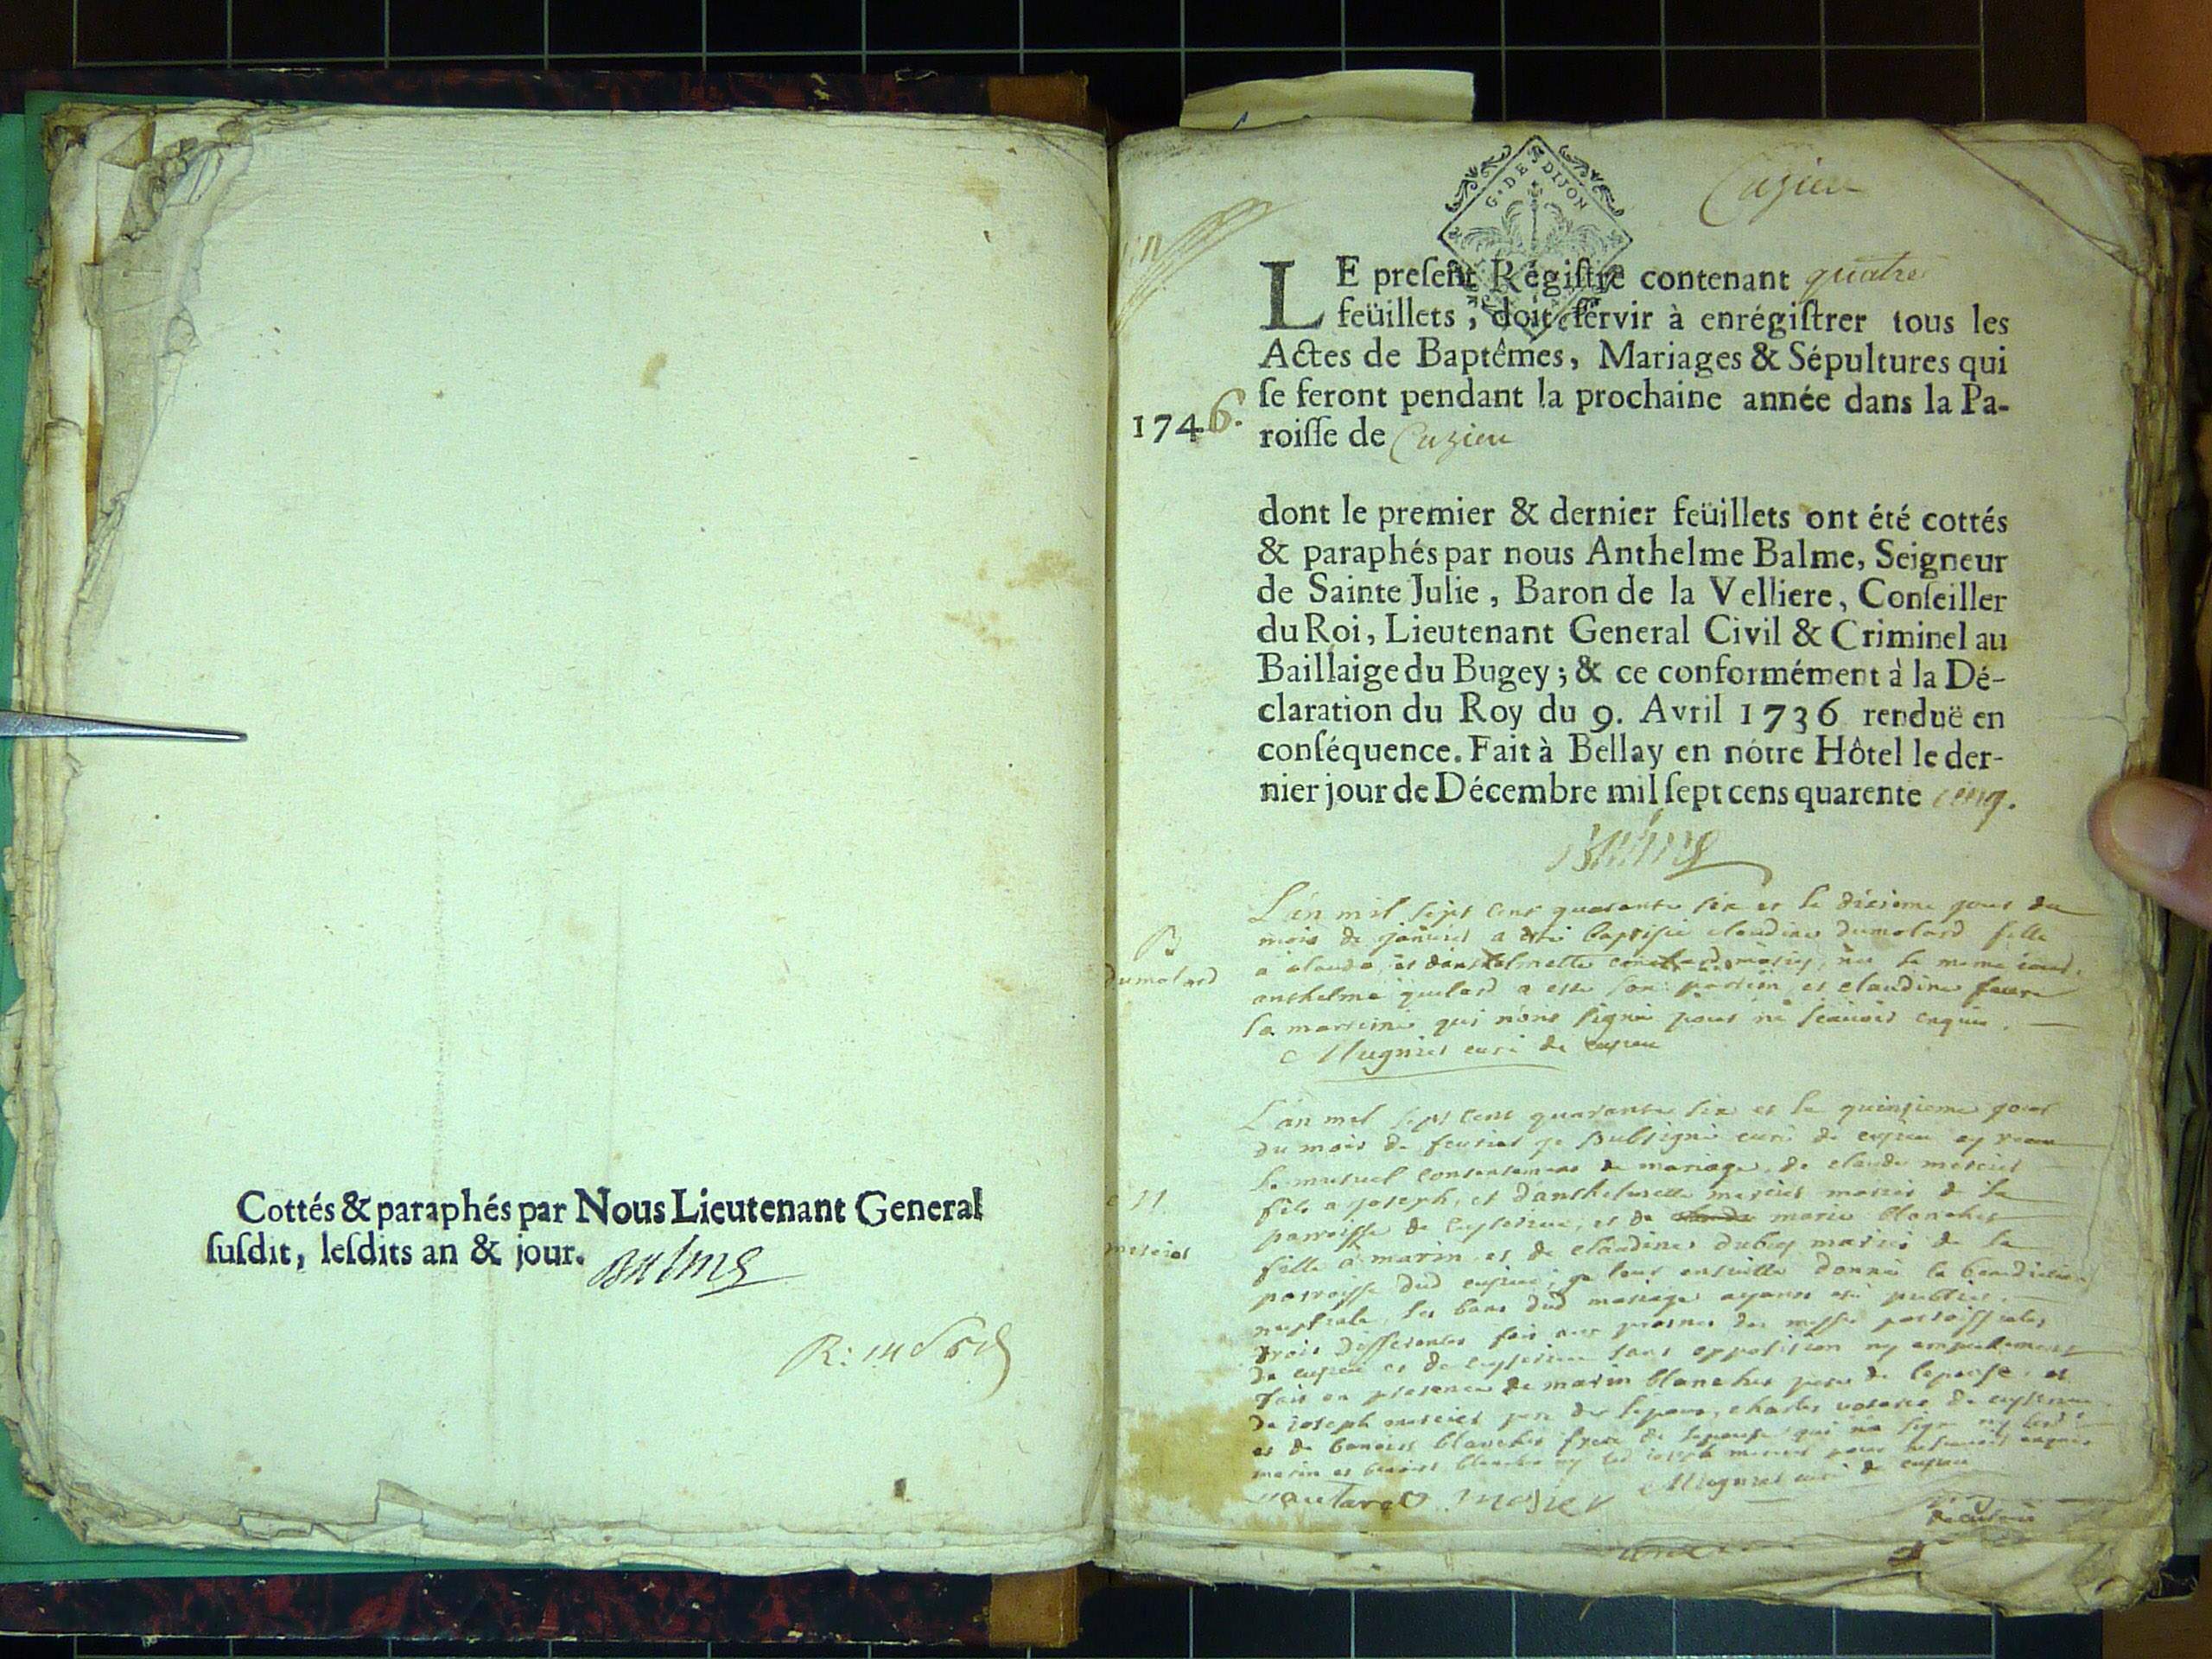 Cottés & paraphés par Nous Lieutenant General
susdit, lesdits an & jour. Balme
G. DE DIJON
Cuzieu
LE present Régistre contenant quatre
feüillets, doit servir à enrégistrer tous les
Actes de Baptêmes, Mariages & Sépultures qui
se feront pendant la prochaine année dans la Pa-
1746.
roisse de Cuzieu
dont le premier & dernier feüillets ont été cottés
& paraphés par nous Anthelme Balme, Seigneur
de Sainte Julie, Baron de la Velliere, Conseiller
du Roi, Lieutenant General Civil & Criminel au
Baillaige du Bugey; & ce conformément à la Dé-
claration du Roy du 9. Avril 1736 renduë en
conséquence. Fait à Bellay en nótre Hôtel le der-
nier jour de Décembre mil sept cens quarente cinq.
Balme
B
dumolard
L'an mil sept cent quarante six et le dixieme jour du
mois de janvier a esté baptisée claudine dumolard fille
a claude et danthelmette mariés, née le meme iour,
anthelme a esté son parrein et claudine favre
la marreine qui n'ont signé pour ne sçavoir enquis.
Mugnier curé de cuzieu
L'an mil sept cent quarante six et le quinzieme jour
du mois de fevrier je soubsigné curé de cuzieu ay receu
le mutuel consentement de mariage de claude mercier
M
mercier
fils a joseph, et d'anthelmette mercier mariés de la
parroisse de et de marie blanchet
fille a marin et de claudine dubuy mariés de la
parroisse dud cuzieu, je leur ensuitte donné la benediction
nuptiale, les bans dud mariage ayants esté publiés
trois differentes fois aux prosnes des messes parroissiales
de cuzieu et de sans opposition ny empechement
fait en presence de marin blanchet pere de lepouse, et
de joseph mercier pere de lepoux, charles de
et de benoist blanchet frere de lepouse qui na signé ny led
marin et benoist blanchet ny led joseph mercier pour ne sçavoir enquis
Mugnier curé de cuzieu